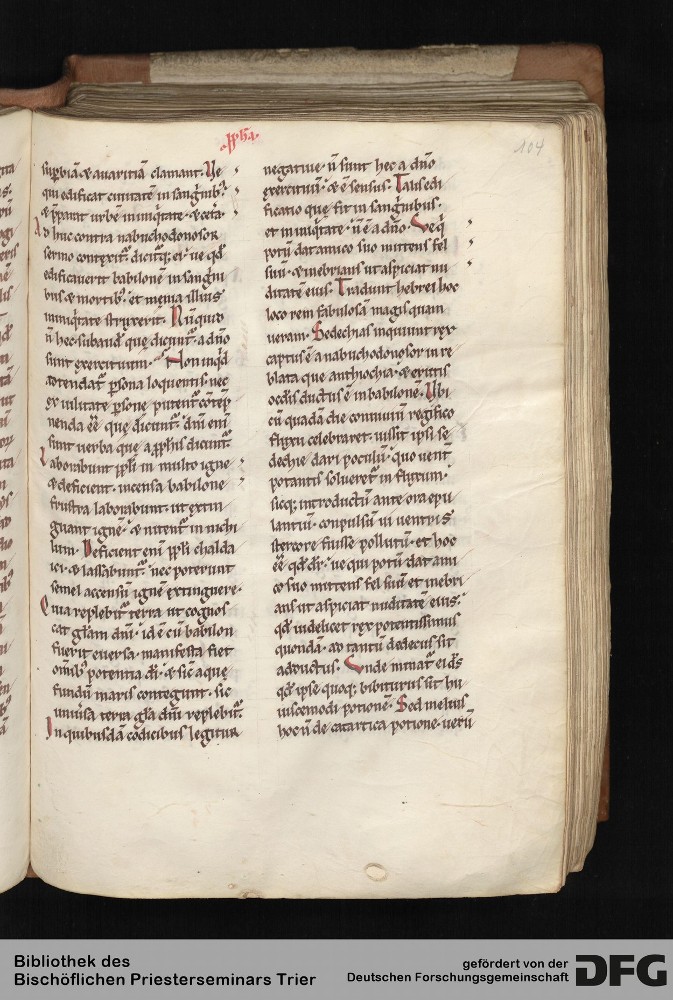 .ꝓpħa.
104
suꝑbiā. & auaritiā clamant. Ve
qui edificat ciuitatē in sang̃nibꝰ.
& p̃parat urbē ininiq̃tate. & cet̃a.
Ad huc contra nabuchodonosor
sermo contexit᷑. dicitq; ei. ue qđ
edificauerit babilonē in sang̃ni
bus & mortibꝰ. et mẹnia illius
ininiq̃tate struxerit. Nūquid
ñ hec subaud᷑ quẹ dicunt᷑. a dño
sunt exercituum. Non inq̃d
adtendat᷑ ꝑsona loquentis. nec
ex uilitate ꝑsonẹ putent᷑ cōtēp
nenda eē quẹ dicunt᷑. dñi enī
sunt uerba que a ꝓphis dicunt᷑.
Laborabunt ppłi in multo igne
& deficient. incensa babilone
frustra laborabunt. ut extin
guant ignē. & nitent᷑ in nichi
lum. Deficient enī ppłi chalda
ici. & lassabunt᷑. nec poterunt
semel accensū ignē extinguere.
Quia replebit᷑ terra ut cognos
cat gl̃am dñi. id ē cū babilon
fuerit euersa. manifesta fiet
om̃ibꝰ potentia dī. & sic aquẹ
fundū maris contegunt. sic
uniũsa terra gl̃a dñi replebit᷑.
In quibusdā codicibus legitur
negatiue. ñ sunt hec a dño
exercituū. & ē sensus. Talis edi
ficatio quẹ fit in sang̃nibus.
et in iniq̃tate. ñ ē a dño. Ve q̃
potū dat amico suo mittens fel
suū. & inebrians ut aspiciat nu
ditatē eius. Tradunt hebrei hoc
loco rem fabulosā magis quam
ueram. Sedechias inquiunt rex
captus ē a nabuchodonosor in re
blata que anthiochia. & erutis
oculis ductus ē in babilonē. Vbi
cū quadā die conuiuiū regifico
fluxu celebraret. iussit ipsi se
dechiẹ dari poculū. quo uent̃
potantis solueret᷑ in fluxum.
sicq; introductū ante ora epu
lantiū. conpulsū ui uentris
stercore fuisse pollutū. et hoc
eē qđ dr̃. ue qui potū dat ami
co suo mittens fel suū et inebri
ans ut aspiciat nuditatē eius.
qđ uidelicet rex potentissimus
quondā. ad tantū dedecus sit
adductus. Vnde minat᷑ ei ds̃
qđ ipse quoq; bibiturus sit hu
iuscemodi potionē. Sed melius
hoc ñ de catartica potione. uerū
Bibliothek des
Bischöflichen Priesterseminars Trier
gefördert von der
Deutschen Forschungsgemeinschaft
DFG